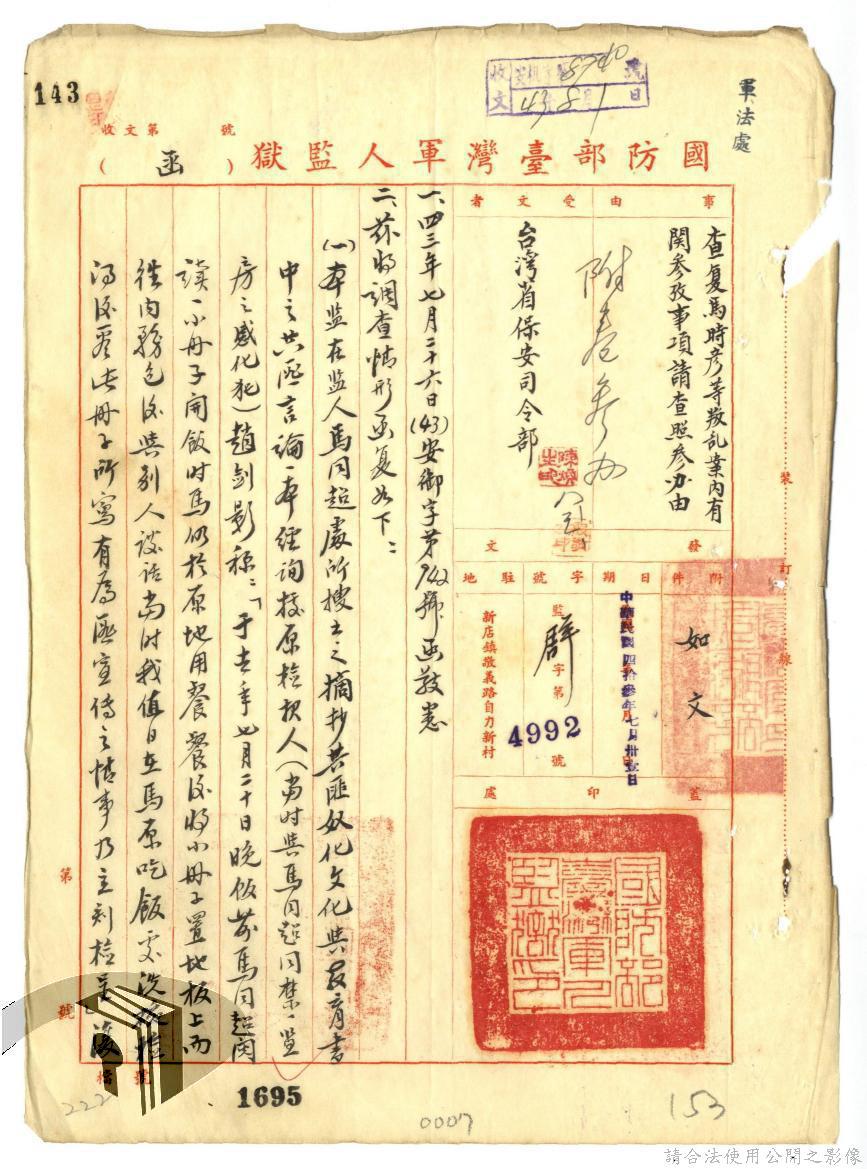 軍法處
143
收文
43 8 1
號
日
收文第　　號
國防部臺灣軍人監獄
（函）
事由
查复馬時彥等叛乱案内有
関參攷事項請查照參办由
受文者
台灣省保安司令部
附卷參办
發文
附件
如文
日期
中華民國四拾參年七月卅壹日
字號
監
字第
4992
號
駐地
新店鎮敬義路自力新村
蓋印處
國防部臺灣軍人監獄印
一、四三年七月二十六日(43)安御字第942號函敬悉
二、茲將調查情形函复如下：
(一)本监在监人馬同超處所搜出之摘抄共匪奴化文化與教育書
中之共匪言論一本經詢據原检报人（当时與馬同超同禁一监
房之感化犯）趙剑影称：「于去年七月二十日晚飯前馬同超閱
读一小册子開飯时馬仍於原地用餐餐後将小册子置地板上而
往内務包後與别人谈話当时我值日在馬原吃飯處洗碗检
得後看此册子所寫有為匪宣傳之情事乃立刻检呈
裝訂線
第
號
檔號
222
1695
0007
153
請合法使用公開之影像